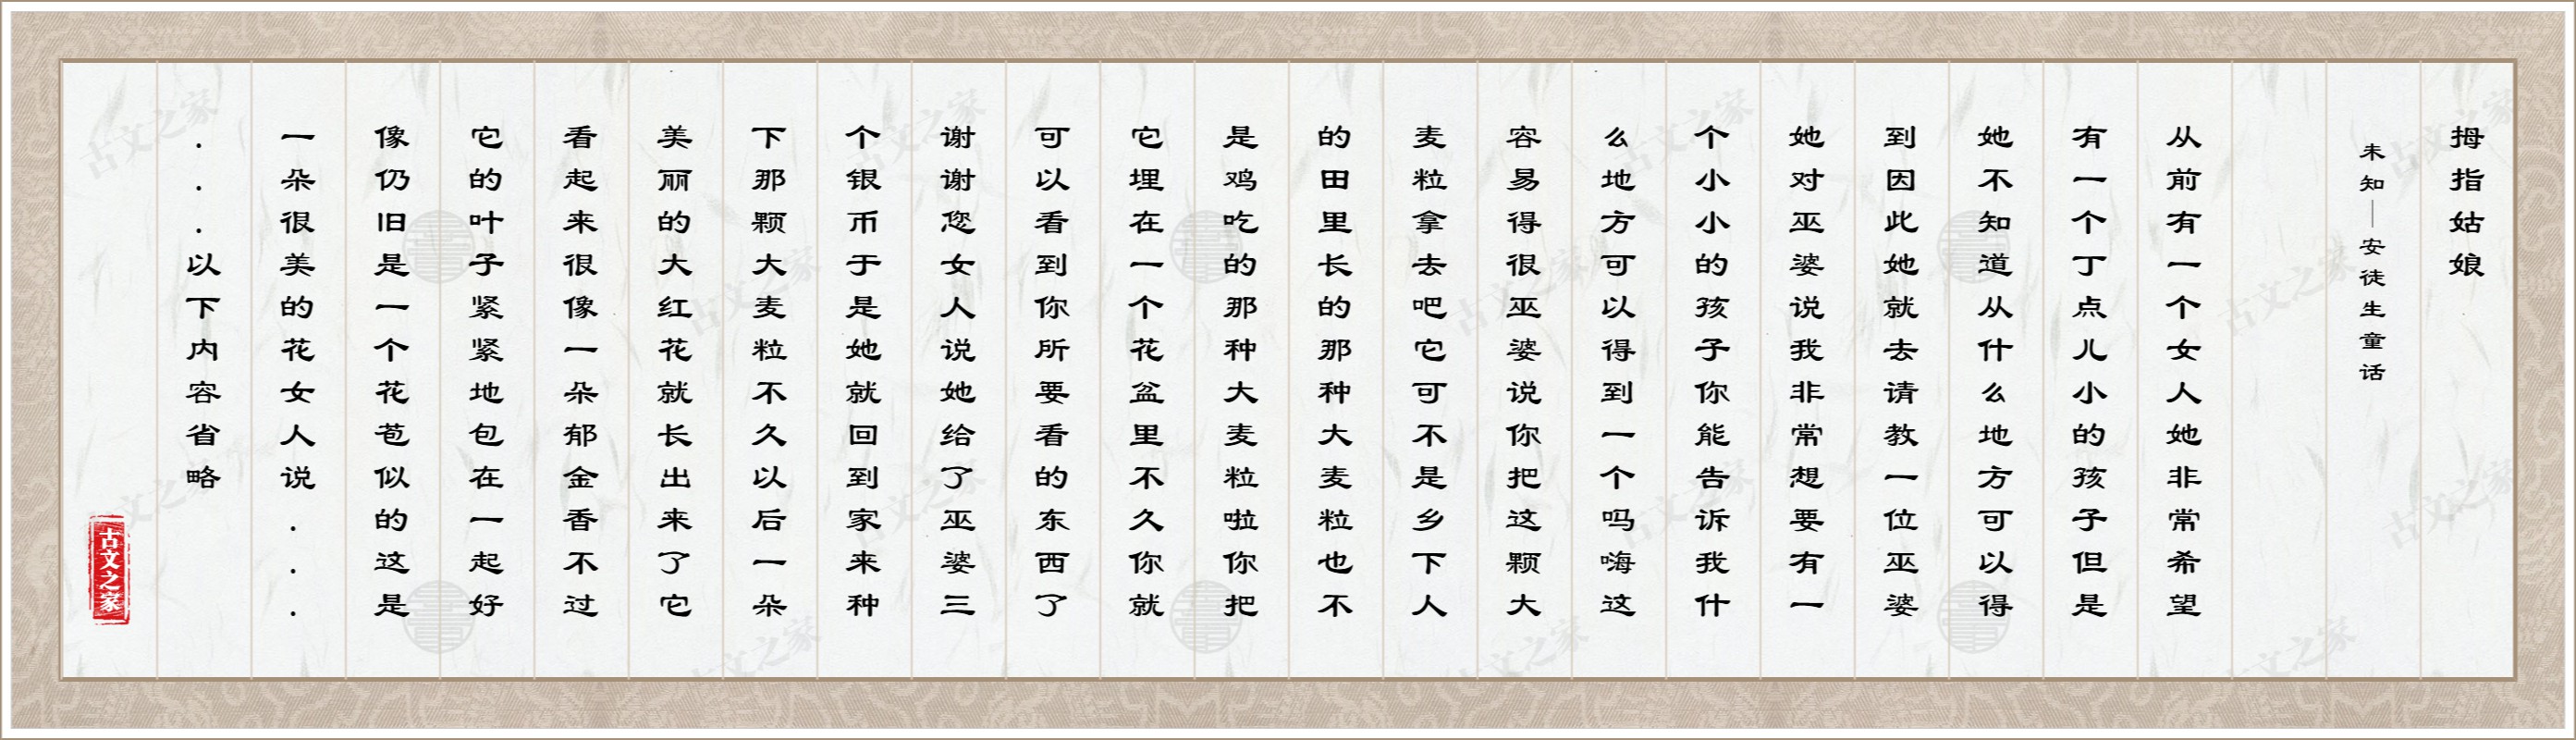 拇指姑娘
未知｜安徒生童话
从前有一个女人她非常希望
有一个丁点儿小的孩子但是
她不知道从什么地方可以得
到因此她就去请教一位巫婆
她对巫婆说我非常想要有一
个小小的孩子你能告诉我什
么地方可以得到一个吗嗨这
容易得很巫婆说你把这颗大
麦粒拿去吧它可不是乡下人
的田里长的那种大麦粒也不
是鸡吃的那种大麦粒啦你把
它埋在一个花盆里不久你就
可以看到你所要看的东西了
谢谢您女人说她给了巫婆三
个银币于是她就回到家来种
下那颗大麦粒不久以后一朵
美丽的大红花就长出来了它
看起来很像一朵郁金香不过
它的叶子紧紧地包在一起好
像仍旧是一个花苞似的这是
一朵很美的花女人说...
...以下内容省略
古文之家